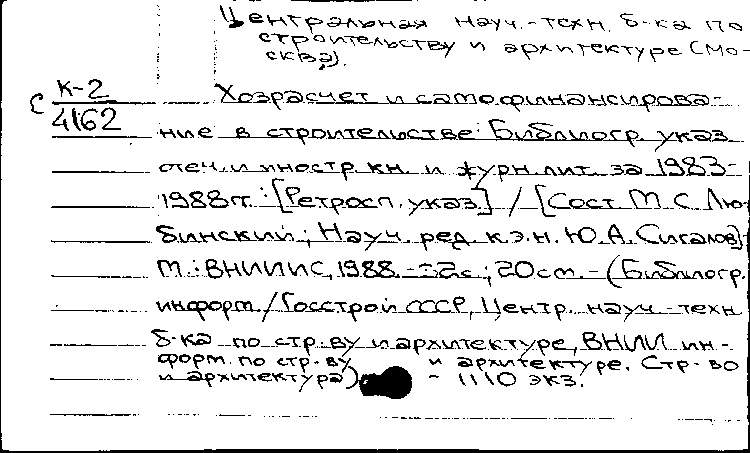 Центральная науч.-техн. б-ка по
строительству и архитектуре (Мо-
сква).
С К-2
4162
Хозрасчет и самофинансирова-
ние в строительстве: Библиогр. указ.
отеч. и иностр. кн. и журн. лит. за 1983-
1988 гг.: [Ретросп. указ.] / [Сост. М. С. Лю-
бинский; Науч. ред. к.э.н. Ю. А. Сигалов]-
М.: ВНИИИС, 1988. - с.; 20 см. - (Библиогр.
информ. / Госстрой СССР, Центр. науч.-техн.
б-ка по стр-ву и архитектуре, ВНИИ ин-
форм. по стр-ву и архитектуре. Стр-во
и архитектура) - 1110 экз.